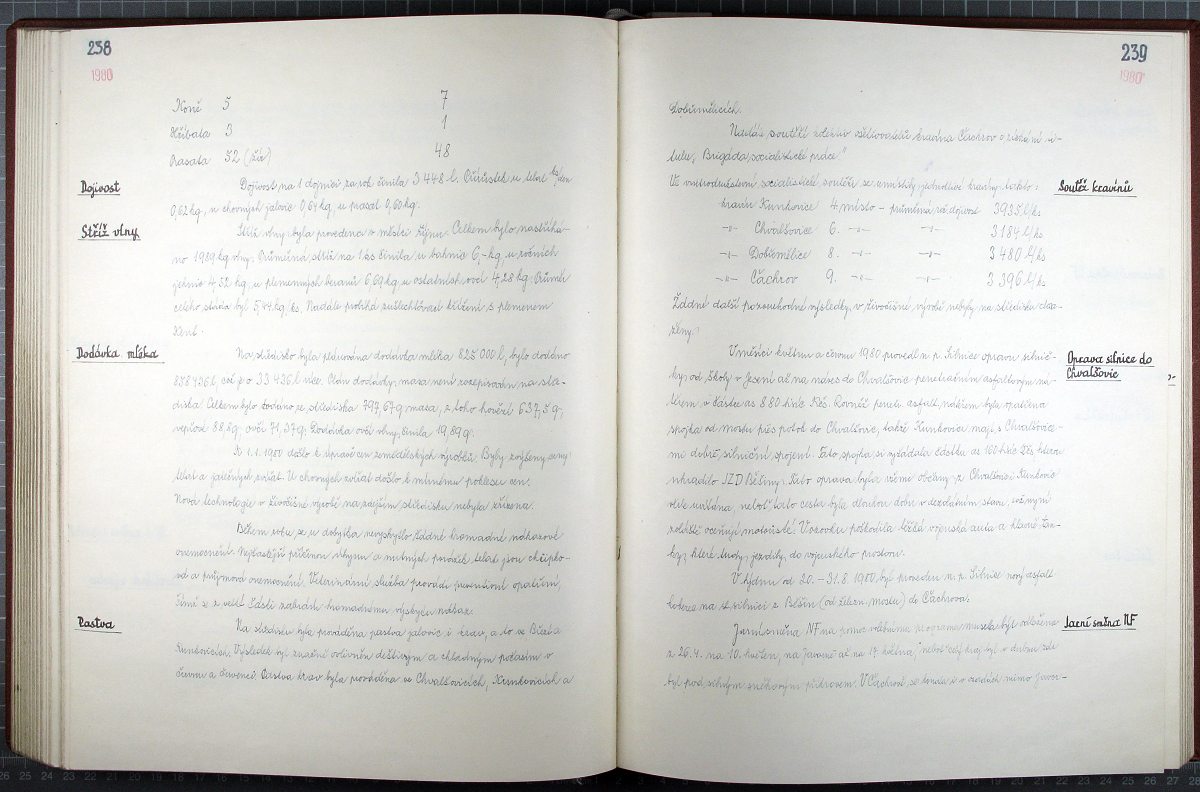 238
1980
Koně 5 7
Hříbata 3 1
Prasata 52 (žír) 48
Dojivost
Dojivost na 1 dojnici za rok činila 3 448 l. Přírůstek u telat kg/den
0,62 kg, u chovných jalovic 0,64 kg, u prasat 0,60 kg.
Stříž vlny
Stříž vlny byla provedena v měsíci říjnu. Celkem bylo nastříhá-
no 1989 kg vlny. Průměrná stříž na 1 ks činila u bahnic 6,- kg, u ročních
jehnic 4,32 kg, u plemenných beranů 6,69 kg, u ostatních ovcí 4,28 kg. Průměr
celého stáda byl 5,44 kg/ks. Nadále probíhá zušlechťovací křížení s plemenem
Kent.
Dodávka mléka
Na středisko byla plánována dodávka mléka 825 000 l, bylo dodáno
858 436 l, což je o 33 436 l více. Plán dodávky masa není rozepisován na stře-
diska. Celkem bylo dodáno ze střediska 797,67 q masa, z toho hovězí 637,5 q,
vepřové 88,8 q, ovčí 71,37 q. Dodávka ovčí vlny činila 19,89 q.
K 1.1. 1980 došlo k úpravě cen zemědělských výrobků. Byly zvýšeny ceny
telat a jatečných zvířat. U chovných zvířat došlo k mírnému poklesu cen.
Nová technologie v živočišné výrobě na zdejším středisku nebyla zřízena.
Během roku se u dobytka nevyskytlo žádné hromadné nákazové
onemocnění. Nejčastější příčinou úhynu a nutných porážek telat jsou chřipko-
vá a průjmová onemocnění. Veterinární služba provádí preventivní opatření,
čímž se z velké části zabrání hromadnému výskytu nákaz.
Pastva
Na středisku byla prováděna pastva jalovic i krav, a to ve
Kunkovicích. Výsledek byl značně ovlivněn deštivým a chladným počasím v
červnu a červenci. Pastva krav byla prováděna ve Chvalšovicích, Kunkovicích a
239
1980
Dobřemělicích.
Nadále soutěží kolektiv ošetřovatelů kravína Čachrov o získání ti-
tulu „Brigáda socialistické práce."
Soutěž kravínů
Ve vnitrodružstevní socialistické soutěži se umístily jednotlivé kravíny takto:
kravín Kunkovice 4. místo - průměrná roč. dojivost 3925 l/ks
-"- Chvalšovice 6. -"- -"- 3184 l/ks
-"- Dobřemělice 8. -"- -"- 3 480 l/ks
-"- Čachrov 9. -"- -"- 3 396 l/ks
Žádné další pozoruhodné výsledky v živočišné výrobě nebyly na středisku dosa-
ženy.
Oprava silnice do
Chvalšovic
V měsíci květnu a červnu 1980 provedl n. p. Silnice opravu silnič-
ky od školy v Jesení až na náves do Chvalšovic penetračním asfaltovým ná-
těrem, v částce as 880 tisíc Kčs. Rovněž penetr. asfalt. nátěrem byla opatřena
spojka od mostu přes potok do Chvalšovic, takže Kunkovice mají s Chvalšovice-
mi dobré silniční spojení. Tato spojka si vyžádala částku as 160 tisíc Kčs, kterou
uhradilo JZD Běšiny. Tato oprava byla všemi občany z Chvalšovic, Kunkovic
velmi vítána, neboť tato cesta byla dlouhou dobu v dezolátním stavu, což nyní
zvláště oceňují motoristé. Vozovku poškodila těžká vojenská auta a hlavně tan-
ky, které tudy jezdily do vojenského prostoru.
V týdnu od 20. - 31. 8. 1980 byl proveden n. p. Silnice nový asfalt.
koberec na st. silnici z Běšin (od železn. mostu) do Čachrova.
Jarní směna NF
Jarní směna NF na pomoc volebnímu programu musela být odložena
z 26. 4. na 10. květen, na Javorné až na 17. května, neboť celý kraj byl v dubnu zde
byl pod silným sněhovým příkrovem. V Čachrově se konala i v osadách mimo Javor-